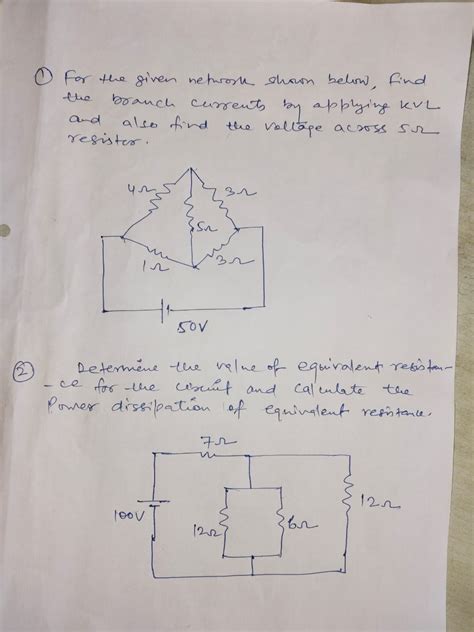 ① For the given network shown below, find
the branch currents by applying KVL
and also find the voltage across 5Ω
resistor.
4Ω 3Ω
5Ω
1Ω 3Ω
50V
② Determine the value of equivalent resistan-
-ce for the circuit and calculate the
Power dissipation of equivalent resistance.
7Ω
100V 12Ω 6Ω 12Ω